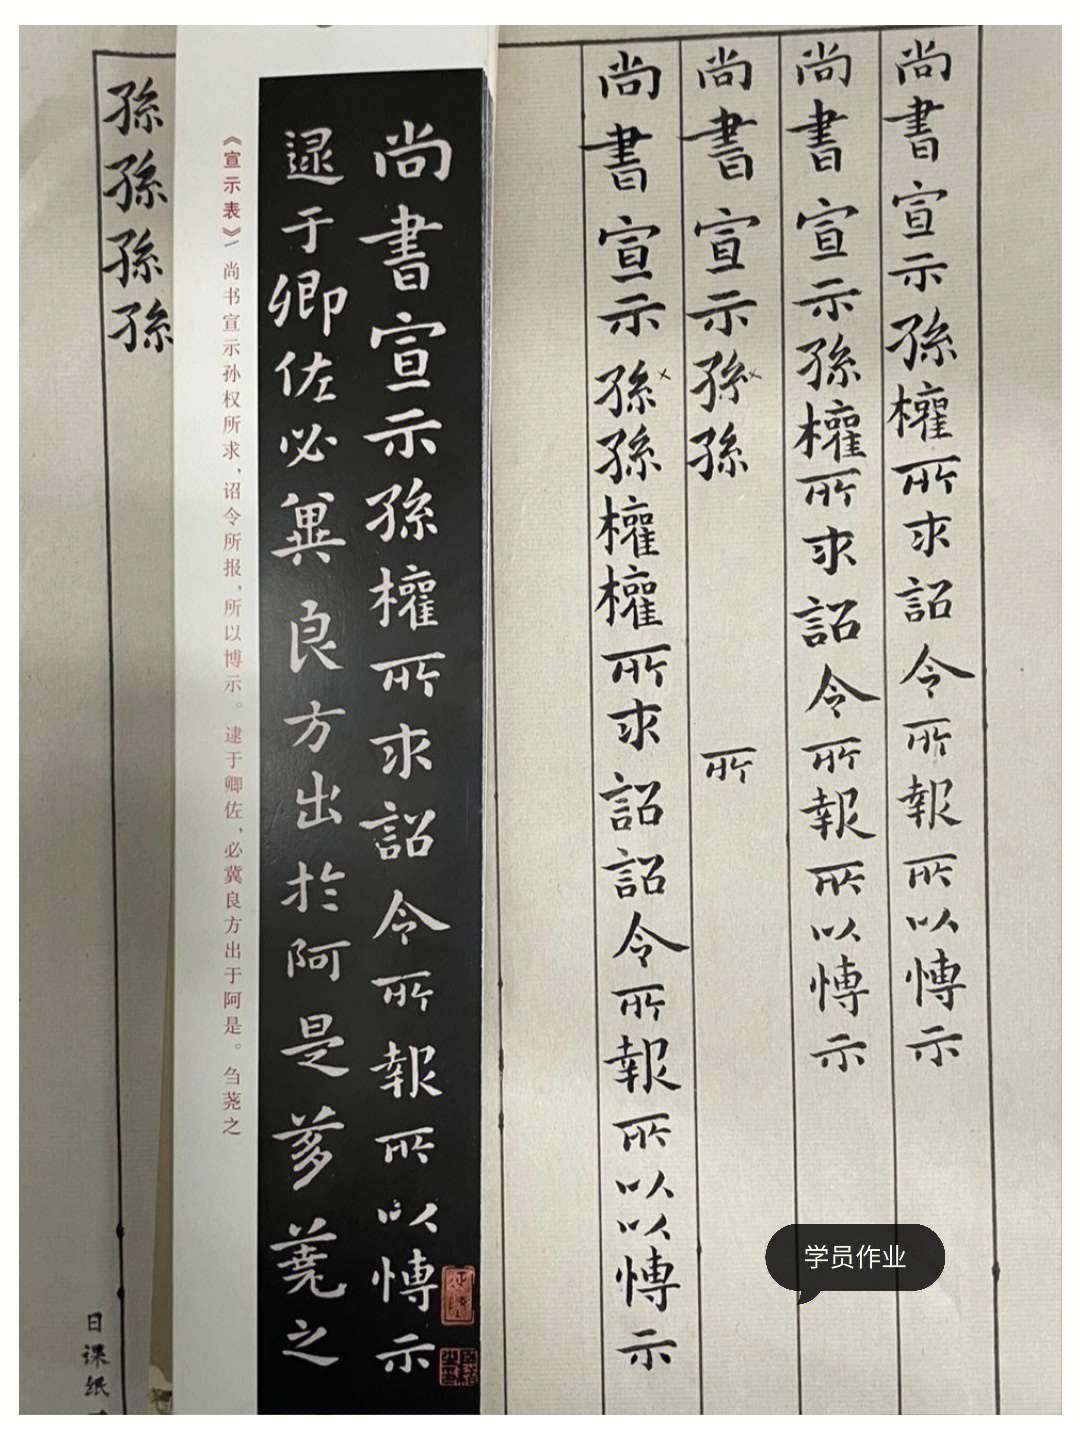 尚書宣示孫權所求詔令所報所以愽示
尚書宣示孫權所求詔令所報所以愽示
尚書宣示孫孫所
尚書宣示孫孫權權所求詔詔令所報所以以愽示
尚書宣示孫權所求詔令所報所以愽示
逯于卿佐必兾良方出於阿是芻蕘之
《宣示表》/尚书宣示孙权所求，诏令所报，所以博示。逮于卿佐，必冀良方出于阿是。刍荛之
孫孫孫孫
日课纸
学员作业